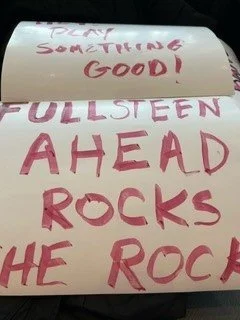 PLAY
SOMETHING
GOOD!
FULLSTEEN
AHEAD
ROCKS
THE ROCK